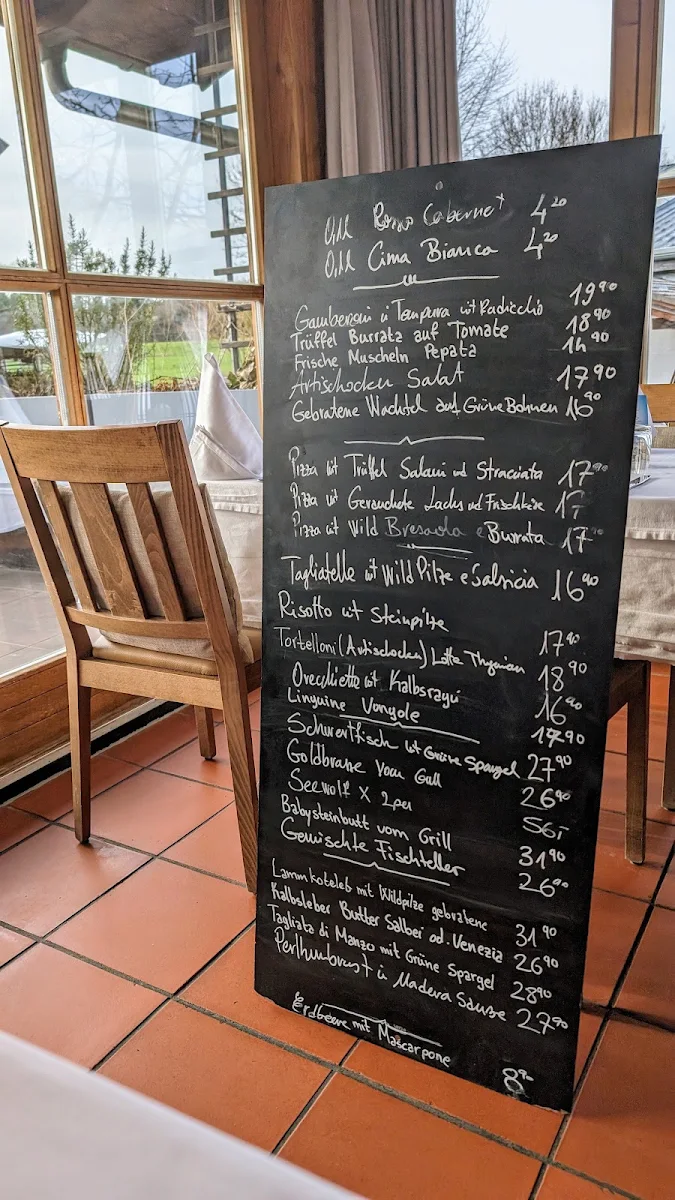 0,1l Rosso Cabernet 4,20
0,1l Cima Bianca 4,20
Gamberoni i Tempura mit Radicchio 19,90
Trüffel Burrata auf Tomate 18,90
Frische Muscheln Pepata 14,90
Artischocken Salat 17,90
Gebratene Wachtel auf Grüne Bohnen 16,90
Pizza mit Trüffel Salami und Straciata 17,90
Pizza mit Geräucherte Lachs und Frischkäse 17,-
Pizza mit Wild Bresaola e Burrata 17,90
Tagliatelle mit Wild Pilze e Salsicia 16,90
Risotto mit Steinpilze 17,90
Tortelloni (Artischocken) Thymian 18,90
Orecchiette mit Kalbsragú 16,90
Linguine Vongole 17,90
Schwertfisch mit Grüne Spargel 27,90
Goldbrane vom Gull 26,90
Seewolf X 2per 56,-
Babysteinbutt vom Grill 31,90
Gemischte Fischteller 26,90
Lammkoteleb mit Wildpilze gebratene 31,90
Kalbsleber Butter Salbei od. Venezia 26,90
Tagliata di Manzo mit Grüne Spargel 28,90
Perlhunbrust i Madera Sause 27,90
Erdbeere mit Mascarpone 8,90